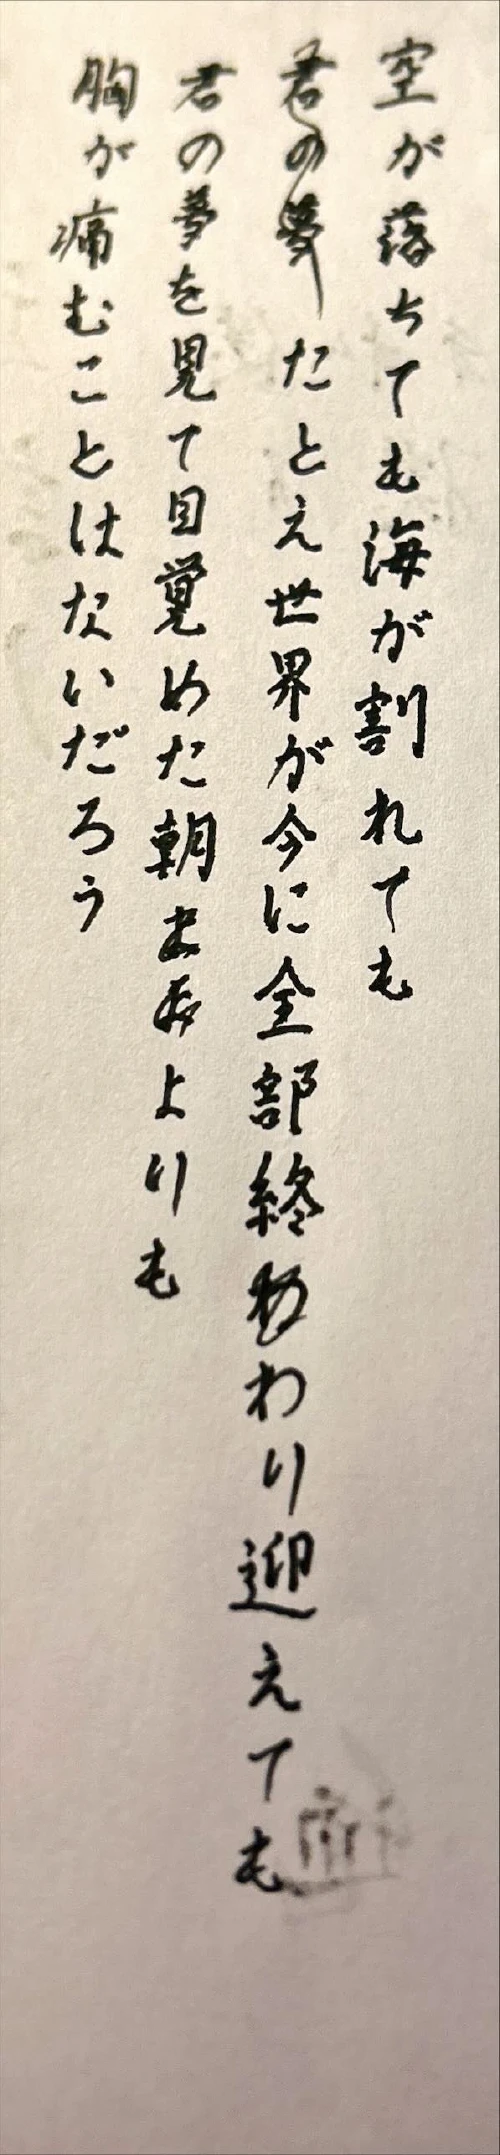 空が落ちても海が割れても
君の夢たとえ世界が今に全部終わり迎えても
君の夢を見て目覚めた朝よりも
胸が痛むことはないだろう